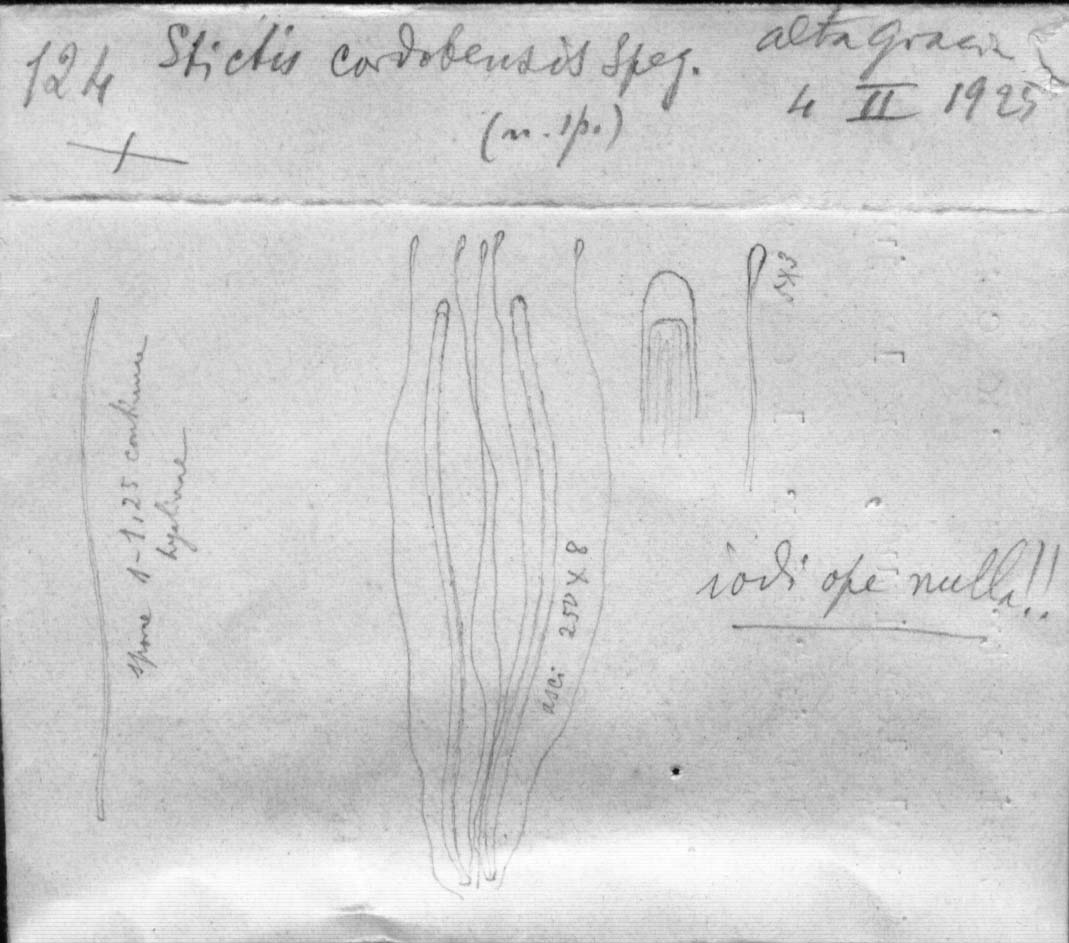 124 Stictis cordobensis Speg. alta gracia
(n. sp.) 4 II 1925
5x3
spore 1-1,25 continue
hyaline
asci 250 x 8
iodi ope nulla!!